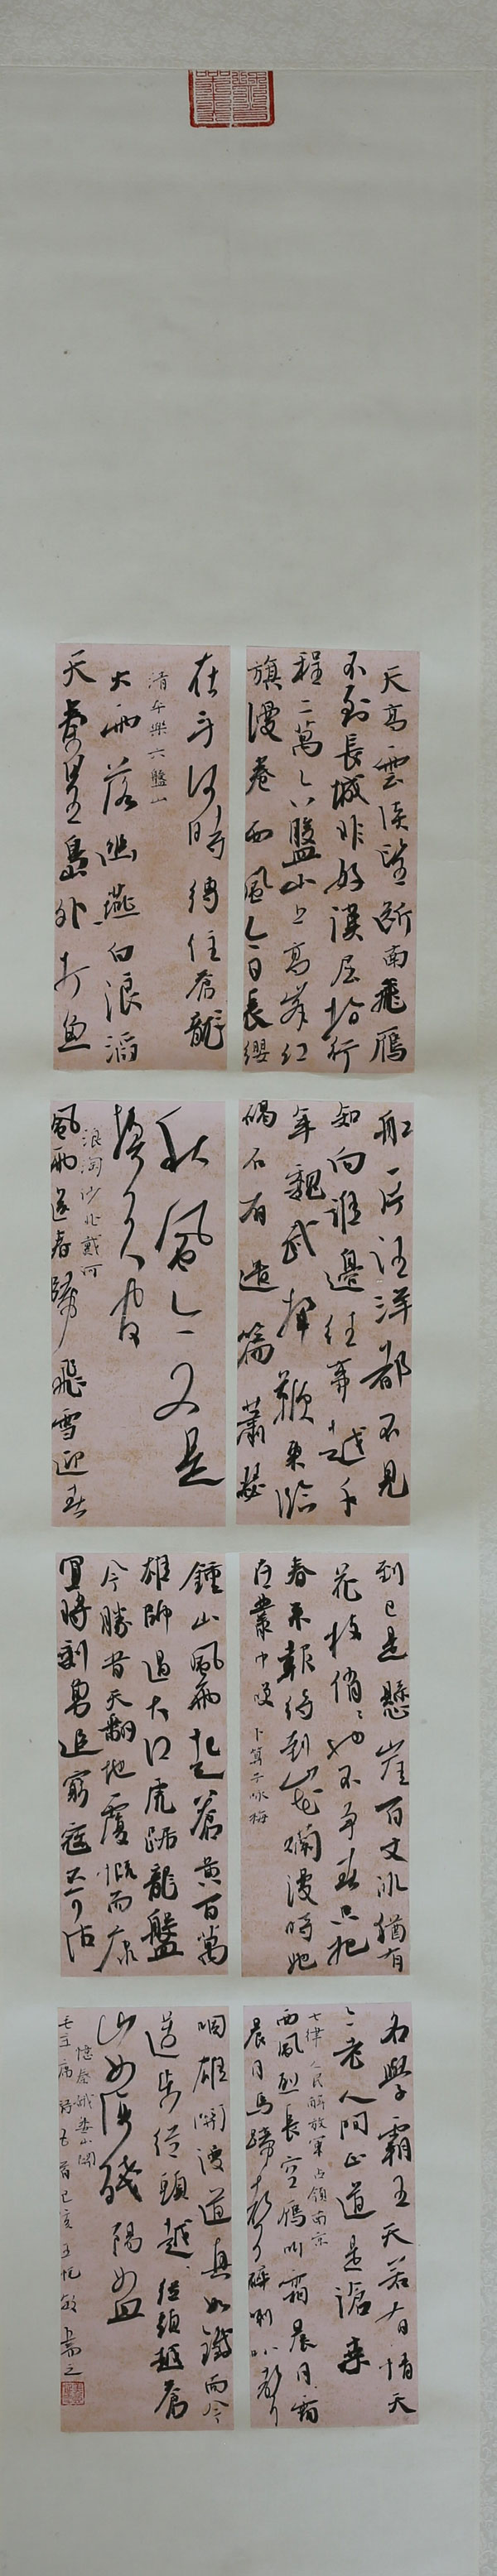 天高雲淡望斷南飛鴈
不到長城非好漢屈指行
程二萬〻六盤山上高峯紅
旗漫卷西風〻今日長纓
在手何時縛住蒼龍
清平樂六盤山
大雨落幽燕白浪滔
天秦皇島外打魚
船一片汪洋都不見
知向誰邊往事越千
年魏武揮鞭東臨
碣石有遺篇蕭瑟
秋風今又是
換了人間
浪淘沙北戴河
風雨送春歸飛雪迎春
到已是懸崖百丈冰猶有
花枝俏〻也不爭春只把
春來報待到山花爛漫時她
在叢中笑 卜算子咏梅
鍾山風雨起蒼黃百萬
雄師過大江虎踞龍盤
今勝昔天翻地覆慨而慷
宜將剩勇追窮寇不可沽
名學霸王天若有情天
亦老人間正道是滄桑
七律人民解放軍占領南京
西風烈長空鴈叫霜晨月霜
晨月馬蹄聲碎喇叭聲
咽雄關漫道真如鐵而今
邁步從頭越從頭越蒼
山如海殘陽如血
憶秦娥婁山關
毛主席詩五首己亥王敏書之